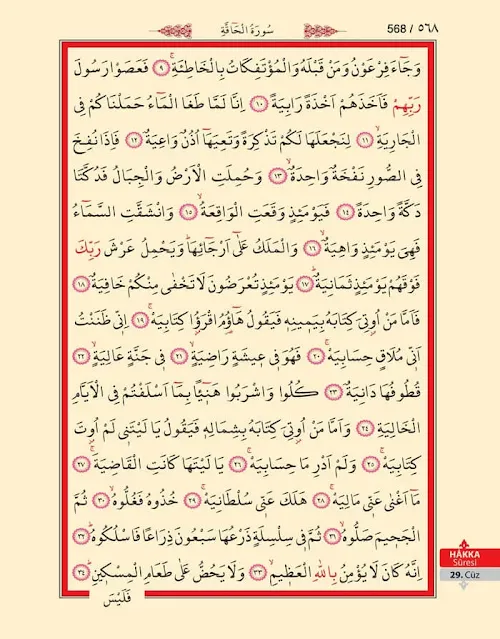 568 / ٥٦٨
سُورَةُ الْحَاقَّةِ
وَجَٓاءَ فِرْعَوْنُ وَمَنْ قَبْلَهُ وَالْمُؤْتَفِكَاتُ بِالْخَاطِئَةِۚ ﴿٩﴾ فَعَصَوْا رَسُولَ
رَبِّهِمْ فَاَخَذَهُمْ اَخْذَةً رَابِيَةً ﴿١٠﴾ اِنَّا لَمَّا طَغَا الْمَٓاءُ حَمَلْنَاكُمْ فِى
الْجَارِيَةِۙ ﴿١١﴾ لِنَجْعَلَهَا لَكُمْ تَذْكِرَةً وَتَعِيَهَٓا اُذُنٌ وَاعِيَةٌ ﴿١٢﴾ فَاِذَا نُفِخَ
فِى الصُّورِ نَفْخَةٌ وَاحِدَةٌۙ ﴿١٣﴾ وَحُمِلَتِ الْاَرْضُ وَالْجِبَالُ فَدُكَّتَا
دَكَّةً وَاحِدَةًۙ ﴿١٤﴾ فَيَوْمَئِذٍ وَقَعَتِ الْوَاقِعَةُۙ ﴿١٥﴾ وَانْشَقَّتِ السَّمَٓاءُ
فَهِىَ يَوْمَئِذٍ وَاهِيَةٌۙ ﴿١٦﴾ وَالْمَلَكُ عَلٰٓى اَرْجَٓائِهَاۜ وَيَحْمِلُ عَرْشَ رَبِّكَ
فَوْقَهُمْ يَوْمَئِذٍ ثَمَانِيَةٌۜ ﴿١٧﴾ يَوْمَئِذٍ تُعْرَضُونَ لَا تَخْفٰى مِنْكُمْ خَافِيَةٌ ﴿١٨﴾
فَاَمَّا مَنْ اُو۫تِىَ كِتَابَهُ بِيَمِينِهٖ فَيَقُولُ هَٓاؤُ۬مُ اقْرَؤُ۫ا كِتَابِيَهْۚ ﴿١٩﴾ اِنّٖى ظَنَنْتُ
اَنّٖى مُلَاقٍ حِسَابِيَهْۚ ﴿٢٠﴾ فَهُوَ فٖى عٖيشَةٍ رَاضِيَةٍۙ ﴿٢١﴾ فٖى جَنَّةٍ عَالِيَةٍۙ ﴿٢٢﴾
قُطُوفُهَا دَانِيَةٌ ﴿٢٣﴾ كُلُوا وَاشْرَبُوا هَنٖٓيـًٔا بِمَٓا اَسْلَفْتُمْ فِى الْاَيَّامِ
الْخَالِيَةِ ﴿٢٤﴾ وَاَمَّا مَنْ اُو۫تِىَ كِتَابَهُ بِشِمَالِهٖ فَيَقُولُ يَا لَيْتَنٖى لَمْ اُو۫تَ
كِتَابِيَهْۚ ﴿٢٥﴾ وَلَمْ اَدْرِ مَا حِسَابِيَهْۚ ﴿٢٦﴾ يَا لَيْتَهَا كَانَتِ الْقَاضِيَةَۚ ﴿٢٧﴾
مَٓا اَغْنٰى عَنّٖى مَالِيَهْۚ ﴿٢٨﴾ هَلَكَ عَنّٖى سُلْطَانِيَهْۚ ﴿٢٩﴾ خُذُوهُ فَغُلُّوهُۙ ﴿٣٠﴾ ثُمَّ
الْجَحٖيمَ صَلُّوهُۙ ﴿٣١﴾ ثُمَّ فٖى سِلْسِلَةٍ ذَرْعُهَا سَبْعُونَ ذِرَاعًا فَاسْلُكُوهُۜ ﴿٣٢﴾
اِنَّهُ كَانَ لَا يُؤْمِنُ بِاللّٰهِ الْعَظٖيمِۙ ﴿٣٣﴾ وَلَا يَحُضُّ عَلٰى طَعَامِ الْمِسْكٖينِۜ ﴿٣٤﴾
فَلَيْسَ
HÂKKA
Sûresi
29. Cüz